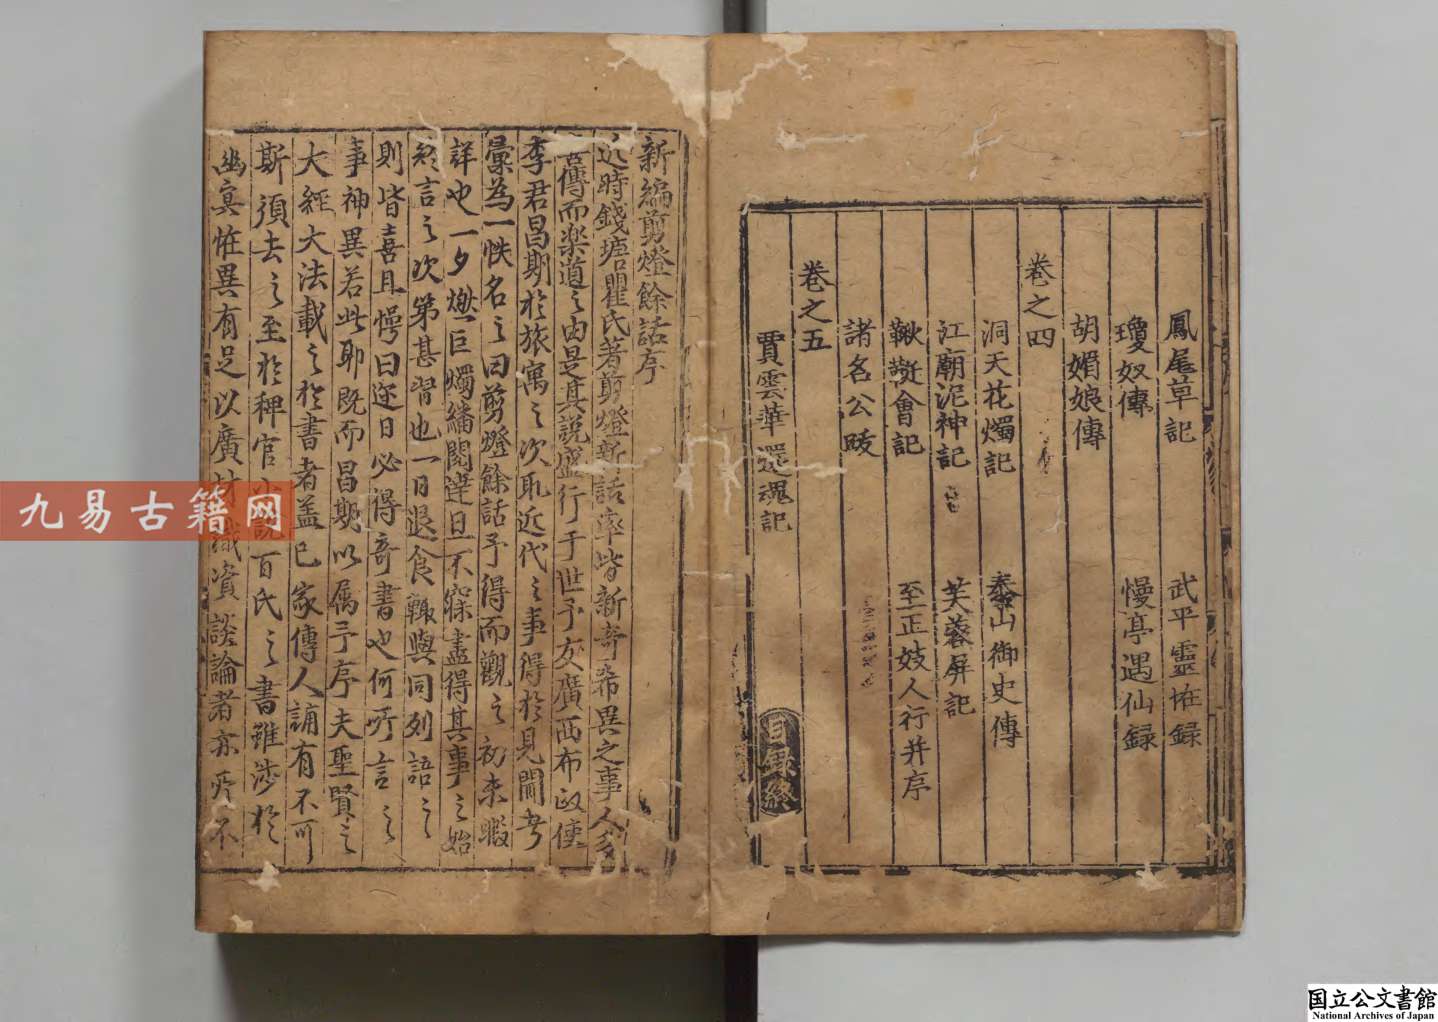 鳳尾草記　武平靈怪録
瓊奴傳　慢亭遇仙録
胡媚娘傳
卷之四
洞天花燭記　泰山御史傳
江廟泥神記　芙蓉屏記
鞦韆會記　至正妓人行并序
諸名公跋
卷之五
賈雲華還魂記
目録終
新編剪燈餘話序
近時錢塘瞿氏著剪燈新話率皆新奇希異之事人多
喜傳而樂道之由是其說盛行于世予友廣西布政使
李君昌期於旅寓之次取近代之事得於見聞者
彙為一帙名之曰剪燈餘話予得而觀之初未暇
詳也一夕燃巨燭繙閱達旦不寐盡得其事之始
終言之次第甚習也一日退食輒與同列語之
則皆喜且愕曰邇日必得奇書也何所言之
事神異若此耶既而昌期以属予序夫聖賢之
大經大法載之於書者蓋已家傳人誦有不可
斯須去之至於稗官小說百氏之書雖涉於
幽冥恠異有足以廣材識資談論者亦所不
九易古籍网
国立公文書館
National Archives of Japan